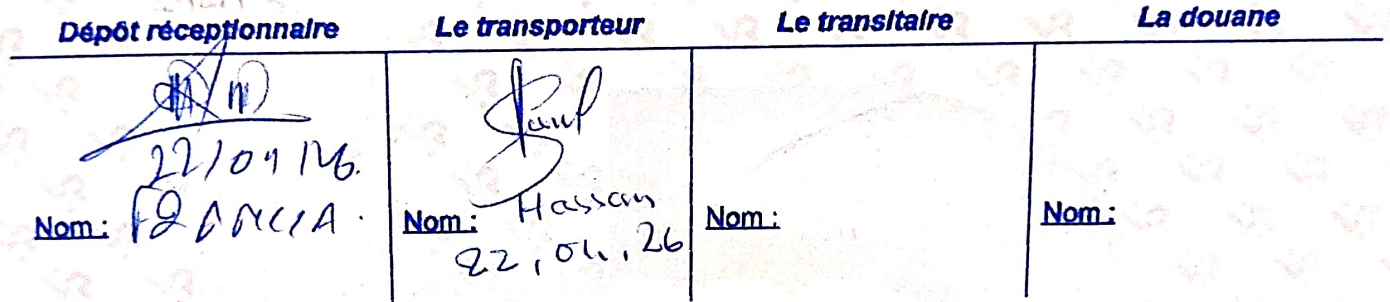 Dépôt réceptionnaire
Le transporteur
Le transitaire
La douane
22/04/26.
Nom :
Nom : Hassan
22, 04, 26
Nom :
Nom :